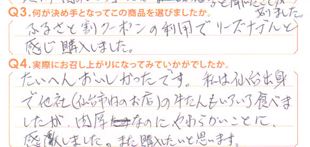 Q3.何が決め手となってこの商品を選びましたか。
ありました。
ふるさと割クーポンの利用でリーズナブルと
感じ購入しました。
Q4.実際にお召し上がりになってみていかがでしたか。
たいへんおいしかったです。私は仙台出身
で他社(仙台市内のお店)の牛たんもいろいろ食べま
したが、肉厚なのにやわらかいことに、
感激しました。また購入したいと思います。